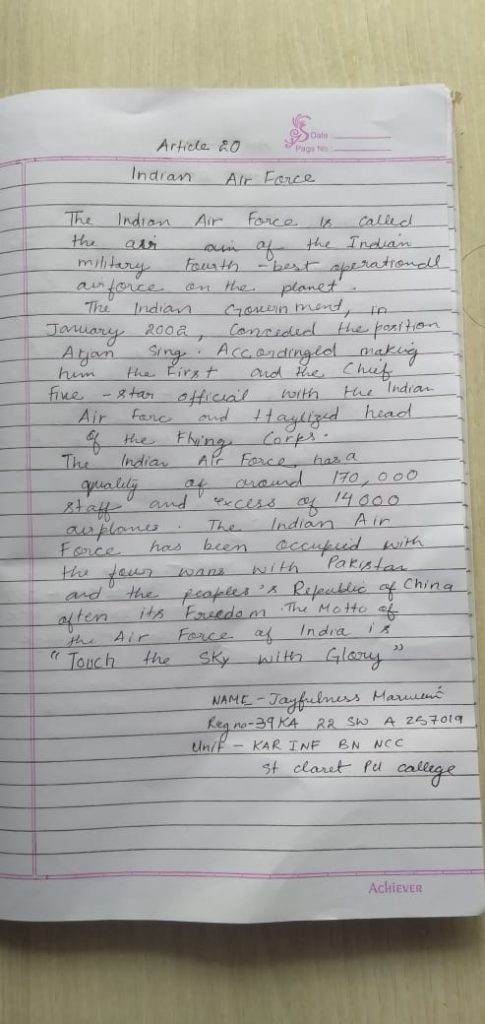 Article 20
Date
Page No.
Indian Air Force
The Indian Air Force is called
the air aim of the Indian
military Fourth - best operationall
airforce on the planet.
The Indian Government, in
January 2002, Conceded the position
Arjan Sing. Accordingled making
him the First and the Chief
Five - star official with the Indian
Air Farc and head
of the Flying Corps.
The Indian Air Force has a
quality of around 170,000
staff and excess of 14000
airplanes. The Indian Air
Force has been occupied with
the four wans with Pakistan
and the peaples's Republic of China
often its Freedom. The Motto of
the Air Force of India is
"Touch the Sky with Glory"
NAME - Jayfulness
Reg no - 39 KA 22 SW A 257019
Unit - KAR INF BN NCC
St claret PU callege
ACHIEVER